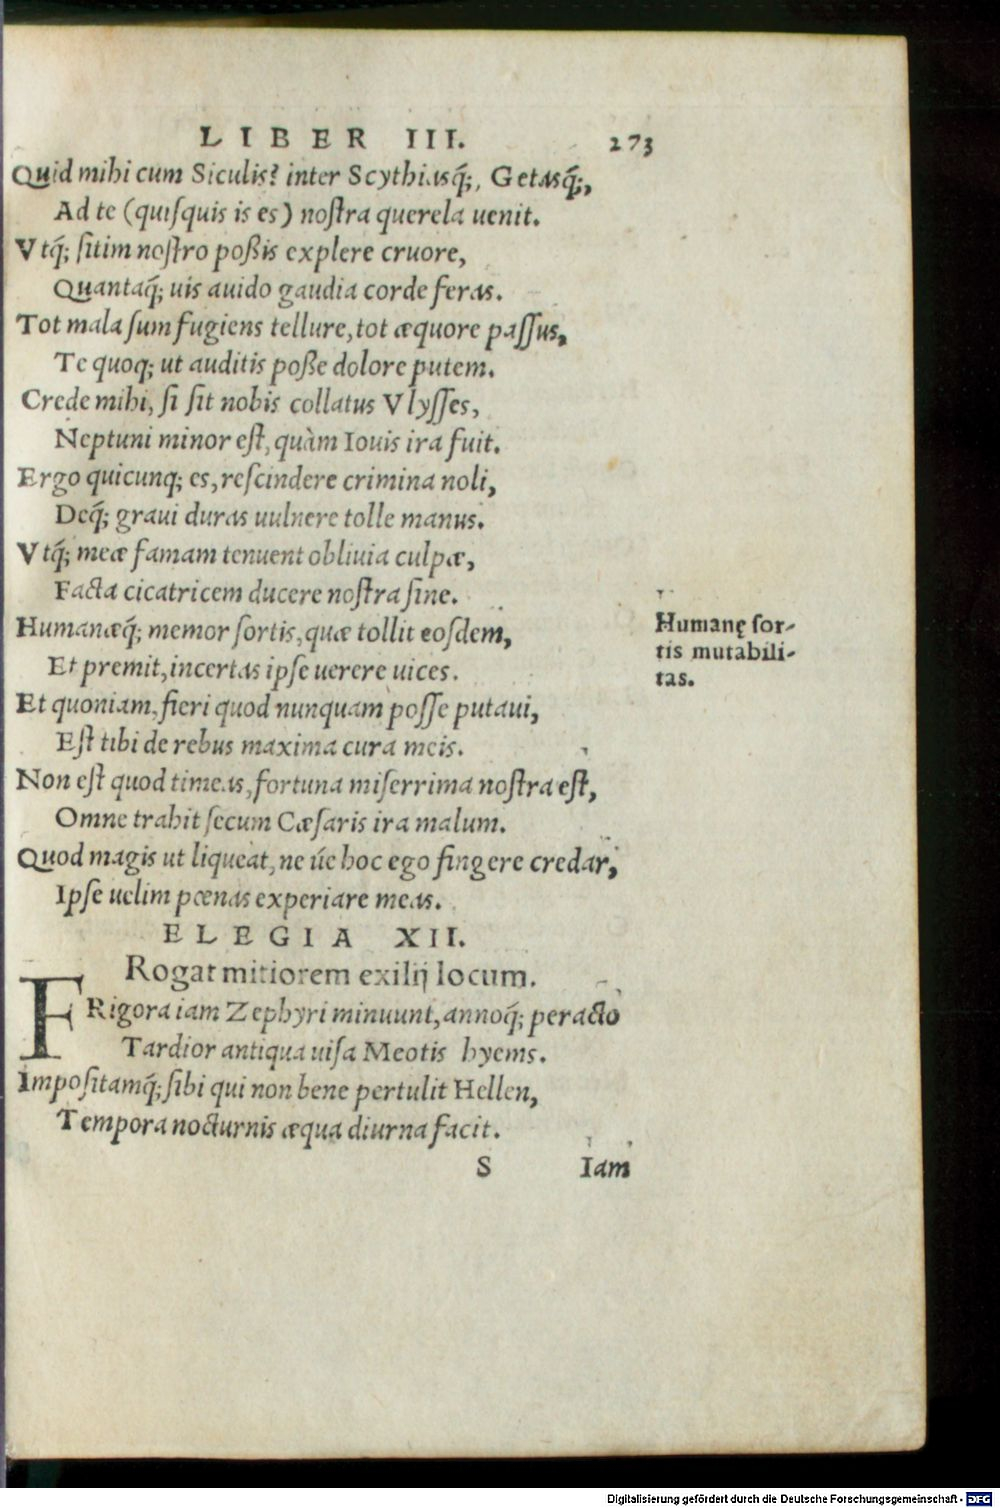 LIBER III. 273
Quid mihi cum Siculis? inter Scythiasq́;, Getasq́;,
Ad te (quiſquis is es) noſtra querela uenit.
Vtq́; ſitim noſtro poßis explere cruore,
Quantaq́; uis auido gaudia corde feras.
Tot mala ſum fugiens tellure, tot æquore paſſus,
Te quoq; ut auditis poße dolore putem.
Crede mihi, ſi ſit nobis collatus Vlyſſes,
Neptuni minor eſt, quàm Iouis ira fuit.
Ergo quicunq; es, reſcindere crimina noli,
Deq́; graui duras uulnere tolle manus.
Vtq́; meæ famam tenuent obliuia culpæ,
Facta cicatricem ducere noſtra ſine.
Humanæq́; memor ſortis, quæ tollit eoſdem,
Et premit, incertas ipſe uerere uices.
Humanę ſor-
tis mutabili-
tas.
Et quoniam, fieri quod nunquam poſſe putaui,
Eſt tibi de rebus maxima cura meis.
Non eſt quod timeas, fortuna miſerrima noſtra eſt,
Omne trahit ſecum Cæſaris ira malum.
Quod magis ut liqueat, ne úe hoc ego fingere credar,
Ipſe uelim pœnas experiare meas.
ELEGIA XII.
Rogat mitiorem exilij locum.
FRigora iam Zephyri minuunt, annoq́; peracto
Tardior antiqua uiſa Meotis hyems.
Impoſitamq́; ſibi qui non bene pertulit Hellen,
Tempora nocturnis æqua diurna facit.
S Iam
Digitalisierung gefördert durch die Deutsche Forschungsgemeinschaft - DFG